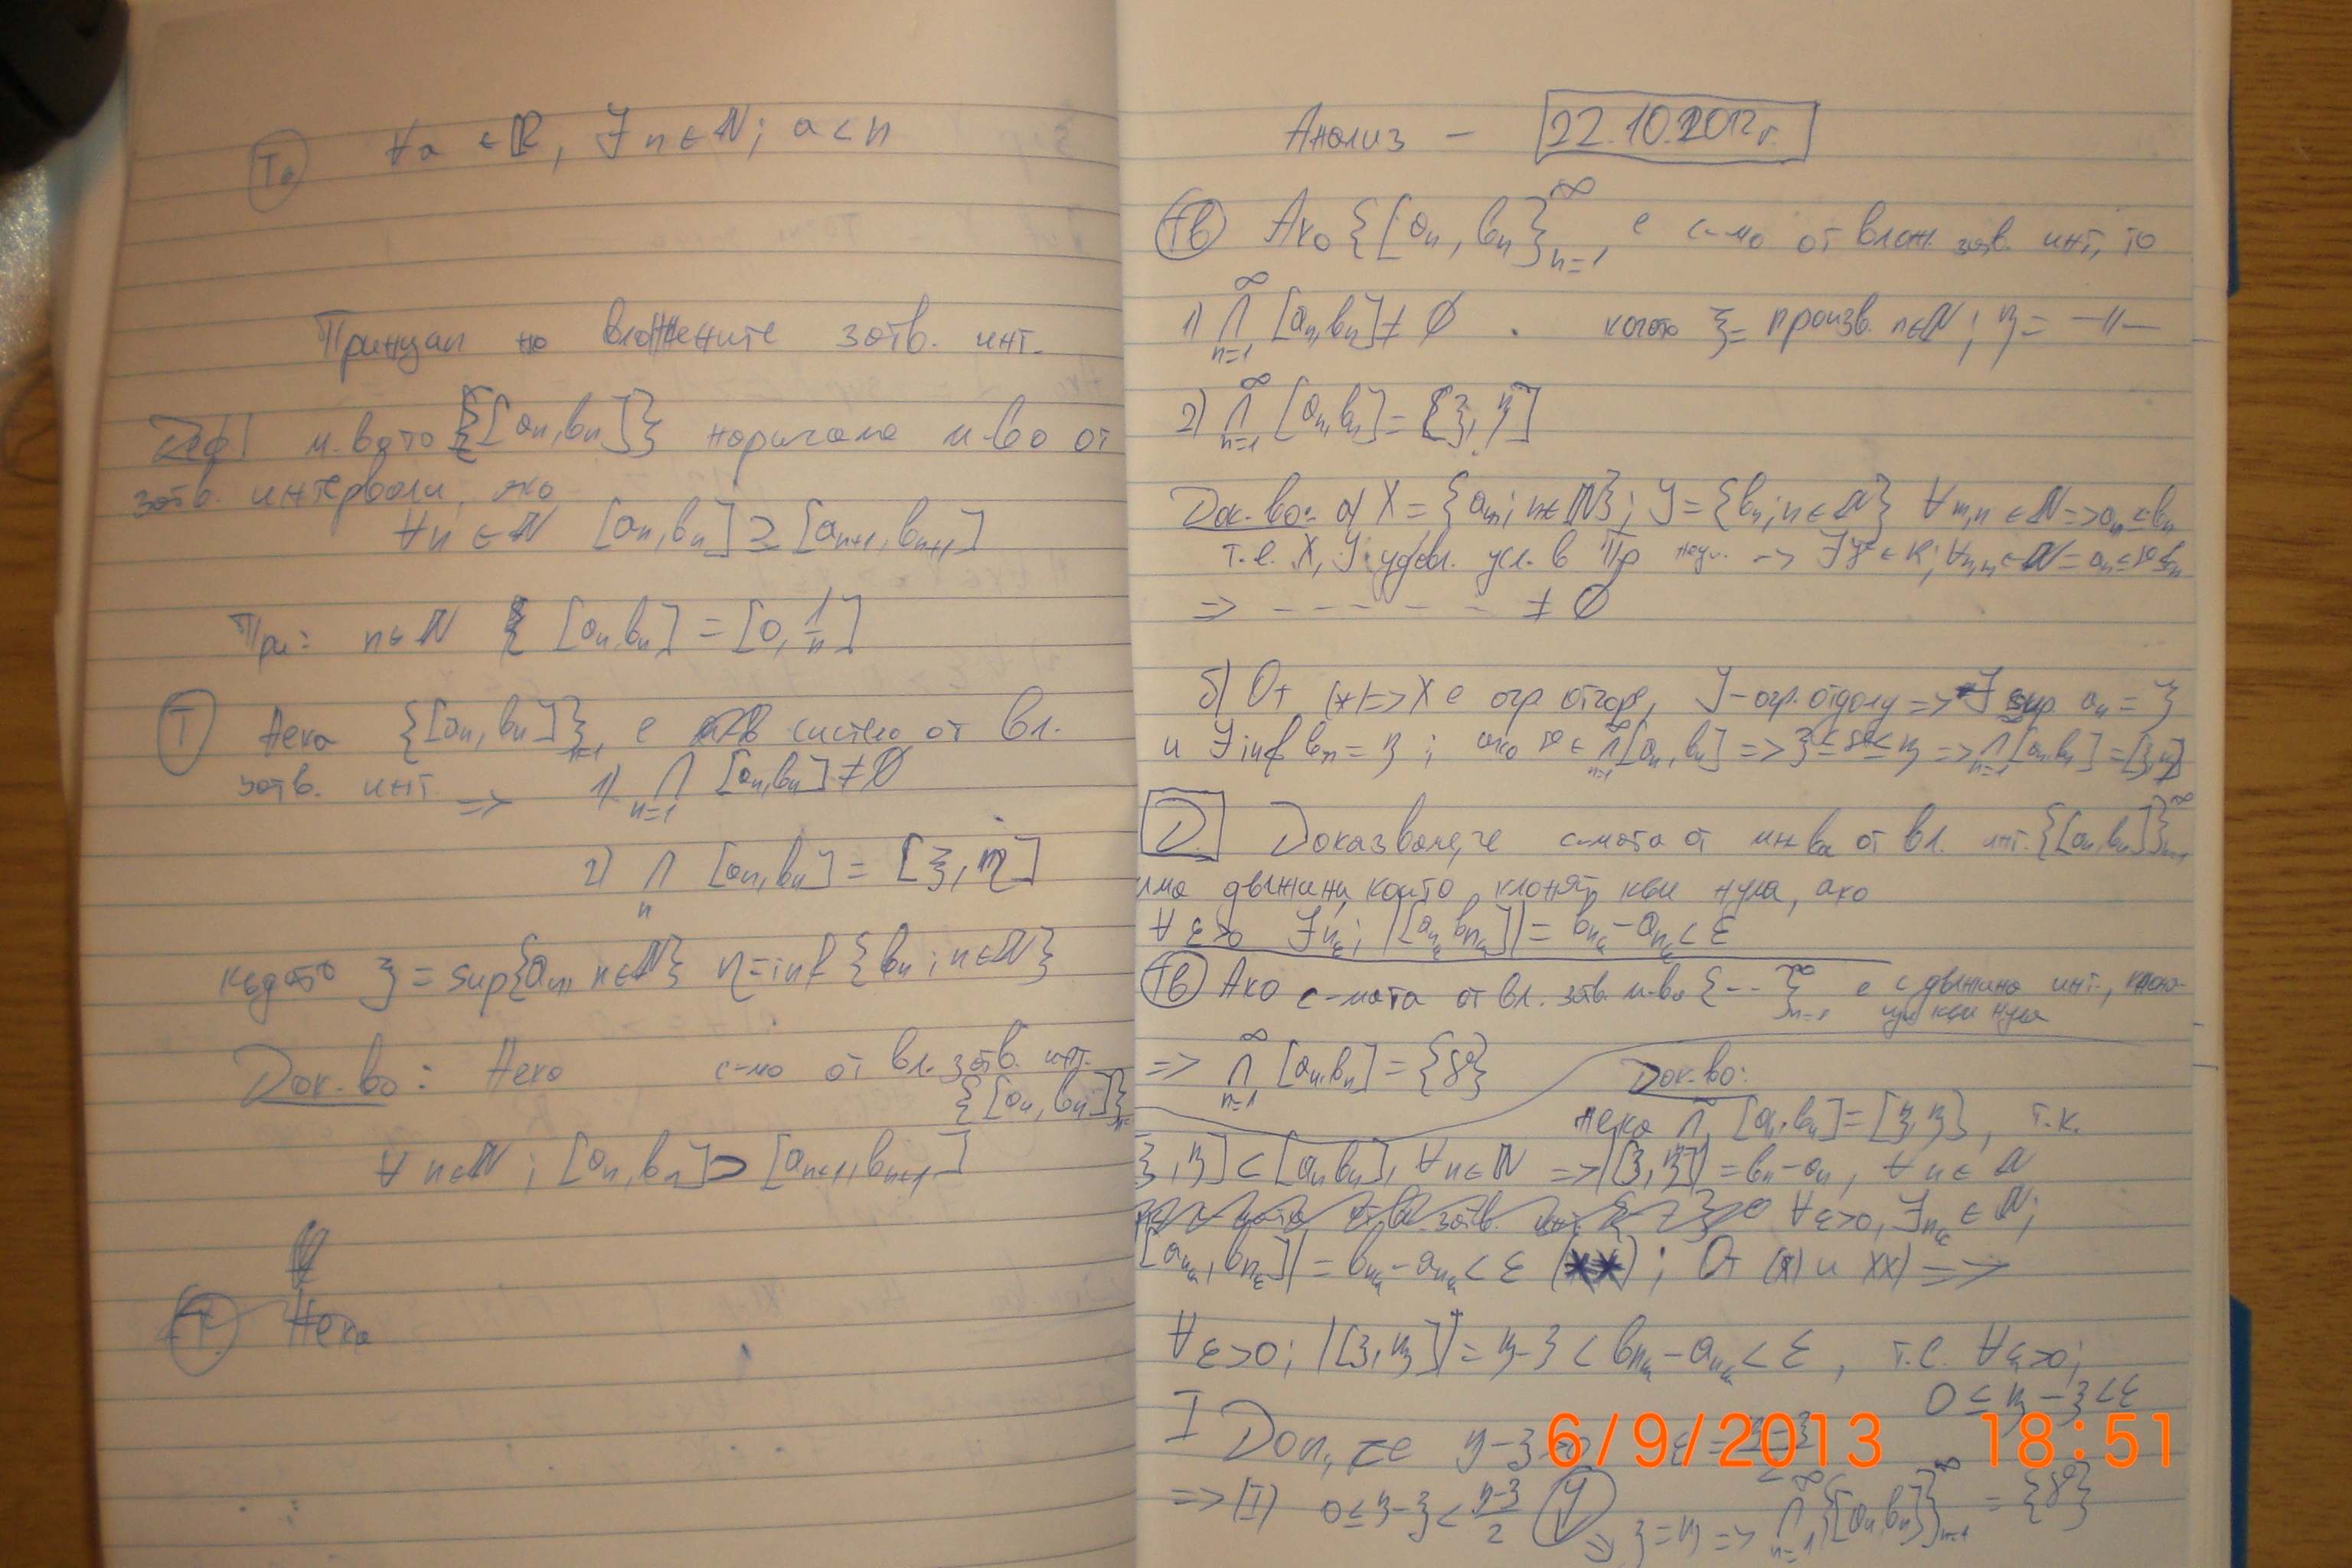 Т. ∀a ∈ ℝ, ∃ n ∈ ℕ; a < n
Принцип на вложените затв. инт.
Деф| м-вото {[an, bn]} наричаме м-во от
затв. интервали, ако
∀n ∈ ℕ [an, bn] ⊇ [an+1, bn+1]
При: n ∈ ℕ [an, bn] = [0, 1/n]
Т Нека {[an, bn]}n=1 е система от вл.
затв. инт. => 1) ∩n=1 [an, bn] ≠ ∅
2) ∩n [an, bn] = [ξ, η]
където ξ = sup{an, n∈ℕ} η = inf {bn ; n∈ℕ}
Док-во: Нека с-ма от вл. затв. инт.
{[an, bn]}n=
∀ n∈ℕ ; [an, bn] ⊃ [an+1, bn+1]
Т. Нека
Анализ – 22.10.2012г.
Тв Ако {[an, bn}∞n=1, е с-ма от влож. затв. инт, то
1) ∞∩n=1 [an, bn] ≠ ∅ . когато ξ = произв. n∈ℕ ; η = –//–
2) ∞∩n=1 [an, bn] = [ξ, η]
Док-во: а) X = {an; n∈ℕ}; Y = {bn; n∈ℕ} ∀m,n ∈ ℕ => an ≤ bn
т.е. X, Y удовл. усл. в Пр
=> – – – – – – ≠ ∅
б) От (*) => X е огр отгоре, Y – огр. отдолу => ∃ sup an = ξ
и ∃ inf bn = η ; ако ∈ ∞∩n=1 [an, bn] => ξ ≤ ≤ η => ∩n=1 [an, bn] = [ξ, η]
Д. Доказваме, че с-мата от инт-ва от вл. инт. {[an, bn]}∞n=1
има дължини, които клонят към нула, ако
∀ ε>0 ∃nε; |[anε bnε]| = bnε – anε < ε
Тв Ако с-мата от вл. затв. м-во {--}∞n=1 е с дължина инт., клоня-
щи към нула
=> ∞∩n=1 [an, bn] = {
} Док-во:
нека ∩ [an, bn] = [ξ, η], т.к.
ξ, η] ⊂ [an bn], ∀n∈ℕ => |[ξ, η]| = bn – an, ∀ n∈ ℕ
∀ε>0, ∃nε ∈ ℕ;
[anε, bnε]| = bnε – anε < ε (**) ; От (*) и **) =>
∀ε>0; |[ξ, η]| = η – ξ < bnε – anε < ε , т.е. ∀ε>0;
0 ≤ η – ξ < ε
I Доп, че η – ξ
=> (I) 0 ≤ η – ξ < η–ξ/2 => ξ = η => ∞∩n=1 {[an, bn]}∞n=1 = {
}
6/9/2013 18:51